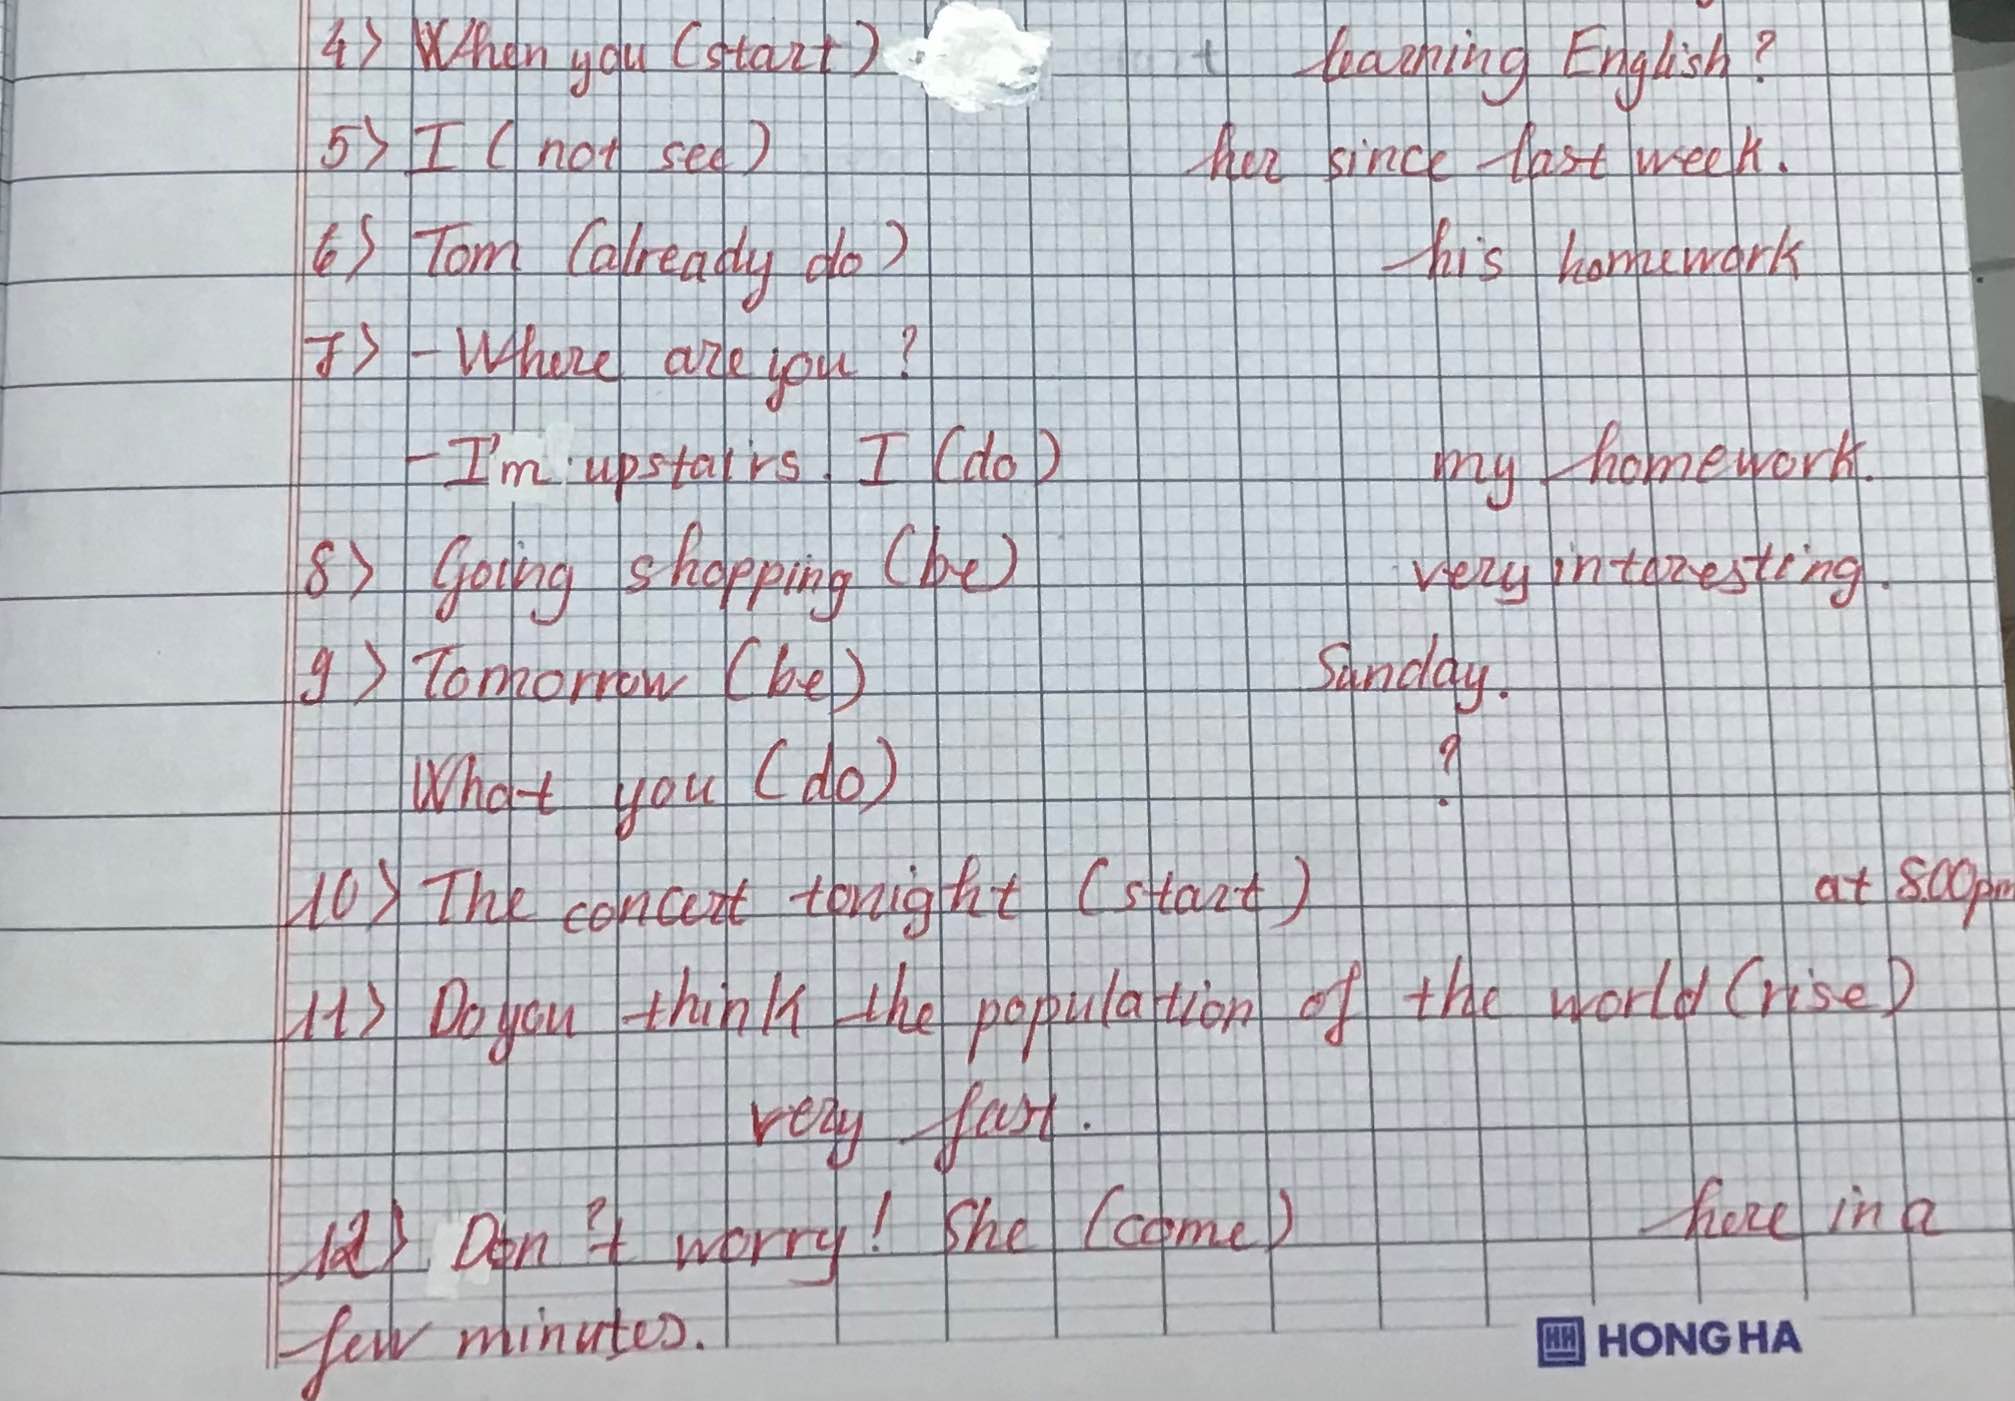 4) When you (start) learning English?
5) I (not see) her since last week.
6) Tom (already do) his homework
7) - Where are you?
- I'm upstairs. I (do) my homework.
8) Going shopping (be) very interesting.
9) Tomorrow (be) Sunday.
What you (do) ?
10) The concert tonight (start) at 8.00pm
11) Do you think the population of the world (rise)
very fast.
12) Don't worry! She (come) here in a
few minutes.
HH HONG HA